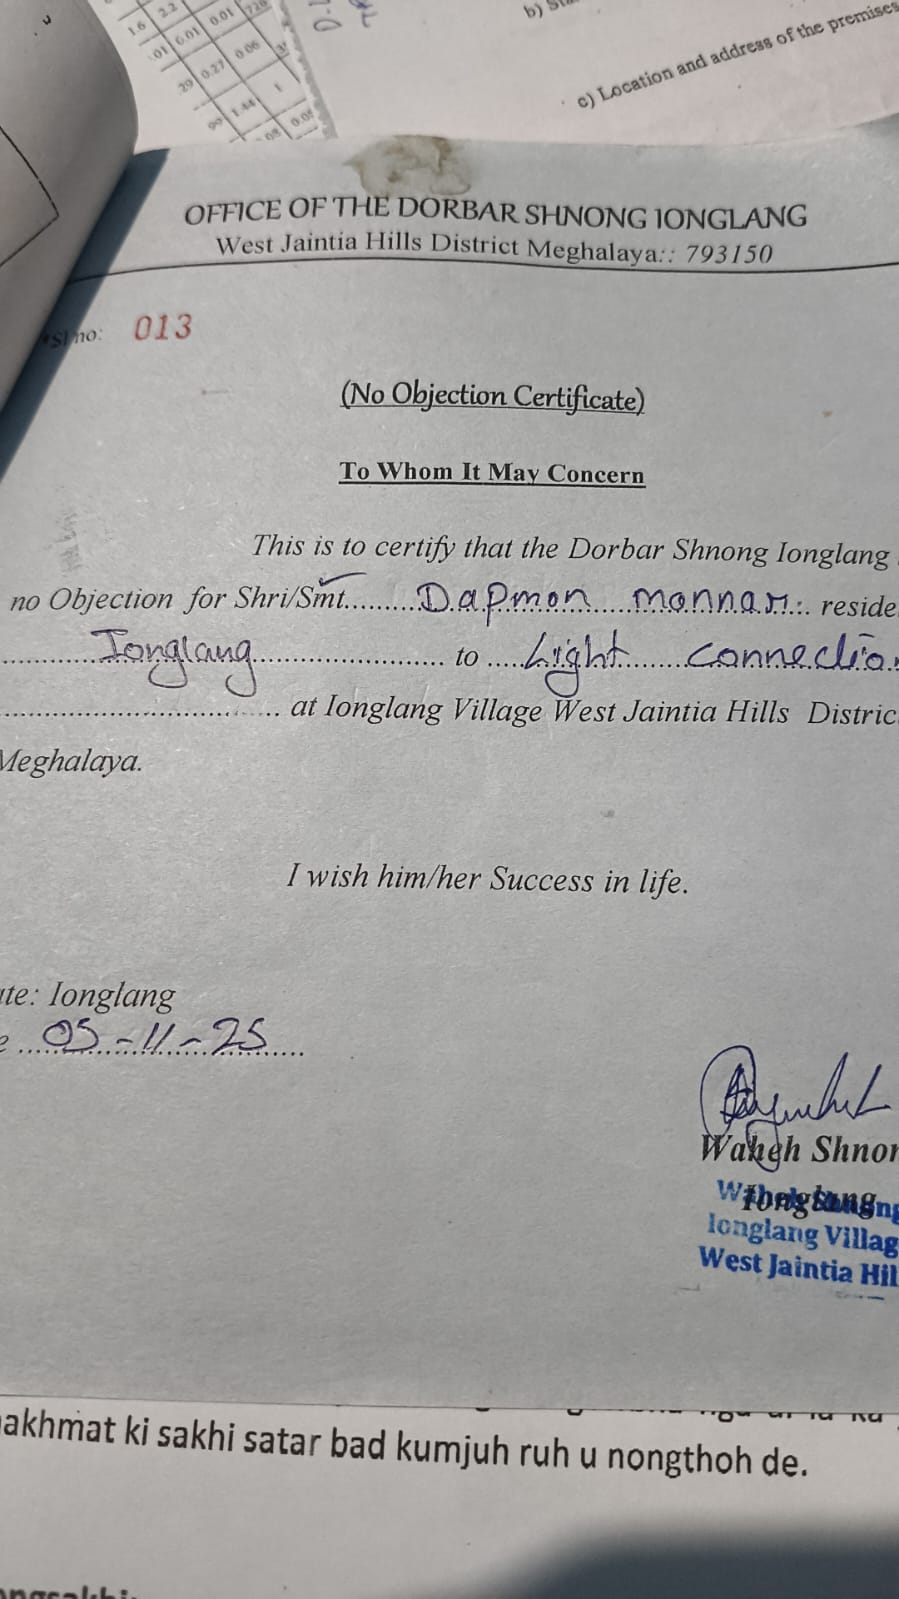 1.6 2.2
01 0.01 0.01 726
29 0.27 0.06
99 1.44 1
08 0.05
c) Location and address of the premises
OFFICE OF THE DORBAR SHNONG IONGLANG
West Jaintia Hills District Meghalaya:: 793150
Sl no: 013
(No Objection Certificate)
To Whom It May Concern
This is to certify that the Dorbar Shnong Ionglang
no Objection for Shri/Smt.........Dapmon monnar... reside
............Ionglang........................ to .....Light.......connection
................................. at Ionglang Village West Jaintia Hills Distric
Meghalaya.
I wish him/her Success in life.
te: Ionglang
e ...05-11-25......
Waheh Shnon
Ionglang
Waheh Shnong
Ionglang Villag
West Jaintia Hil
akhmat ki sakhi satar bad kumjuh ruh u nongthoh de.